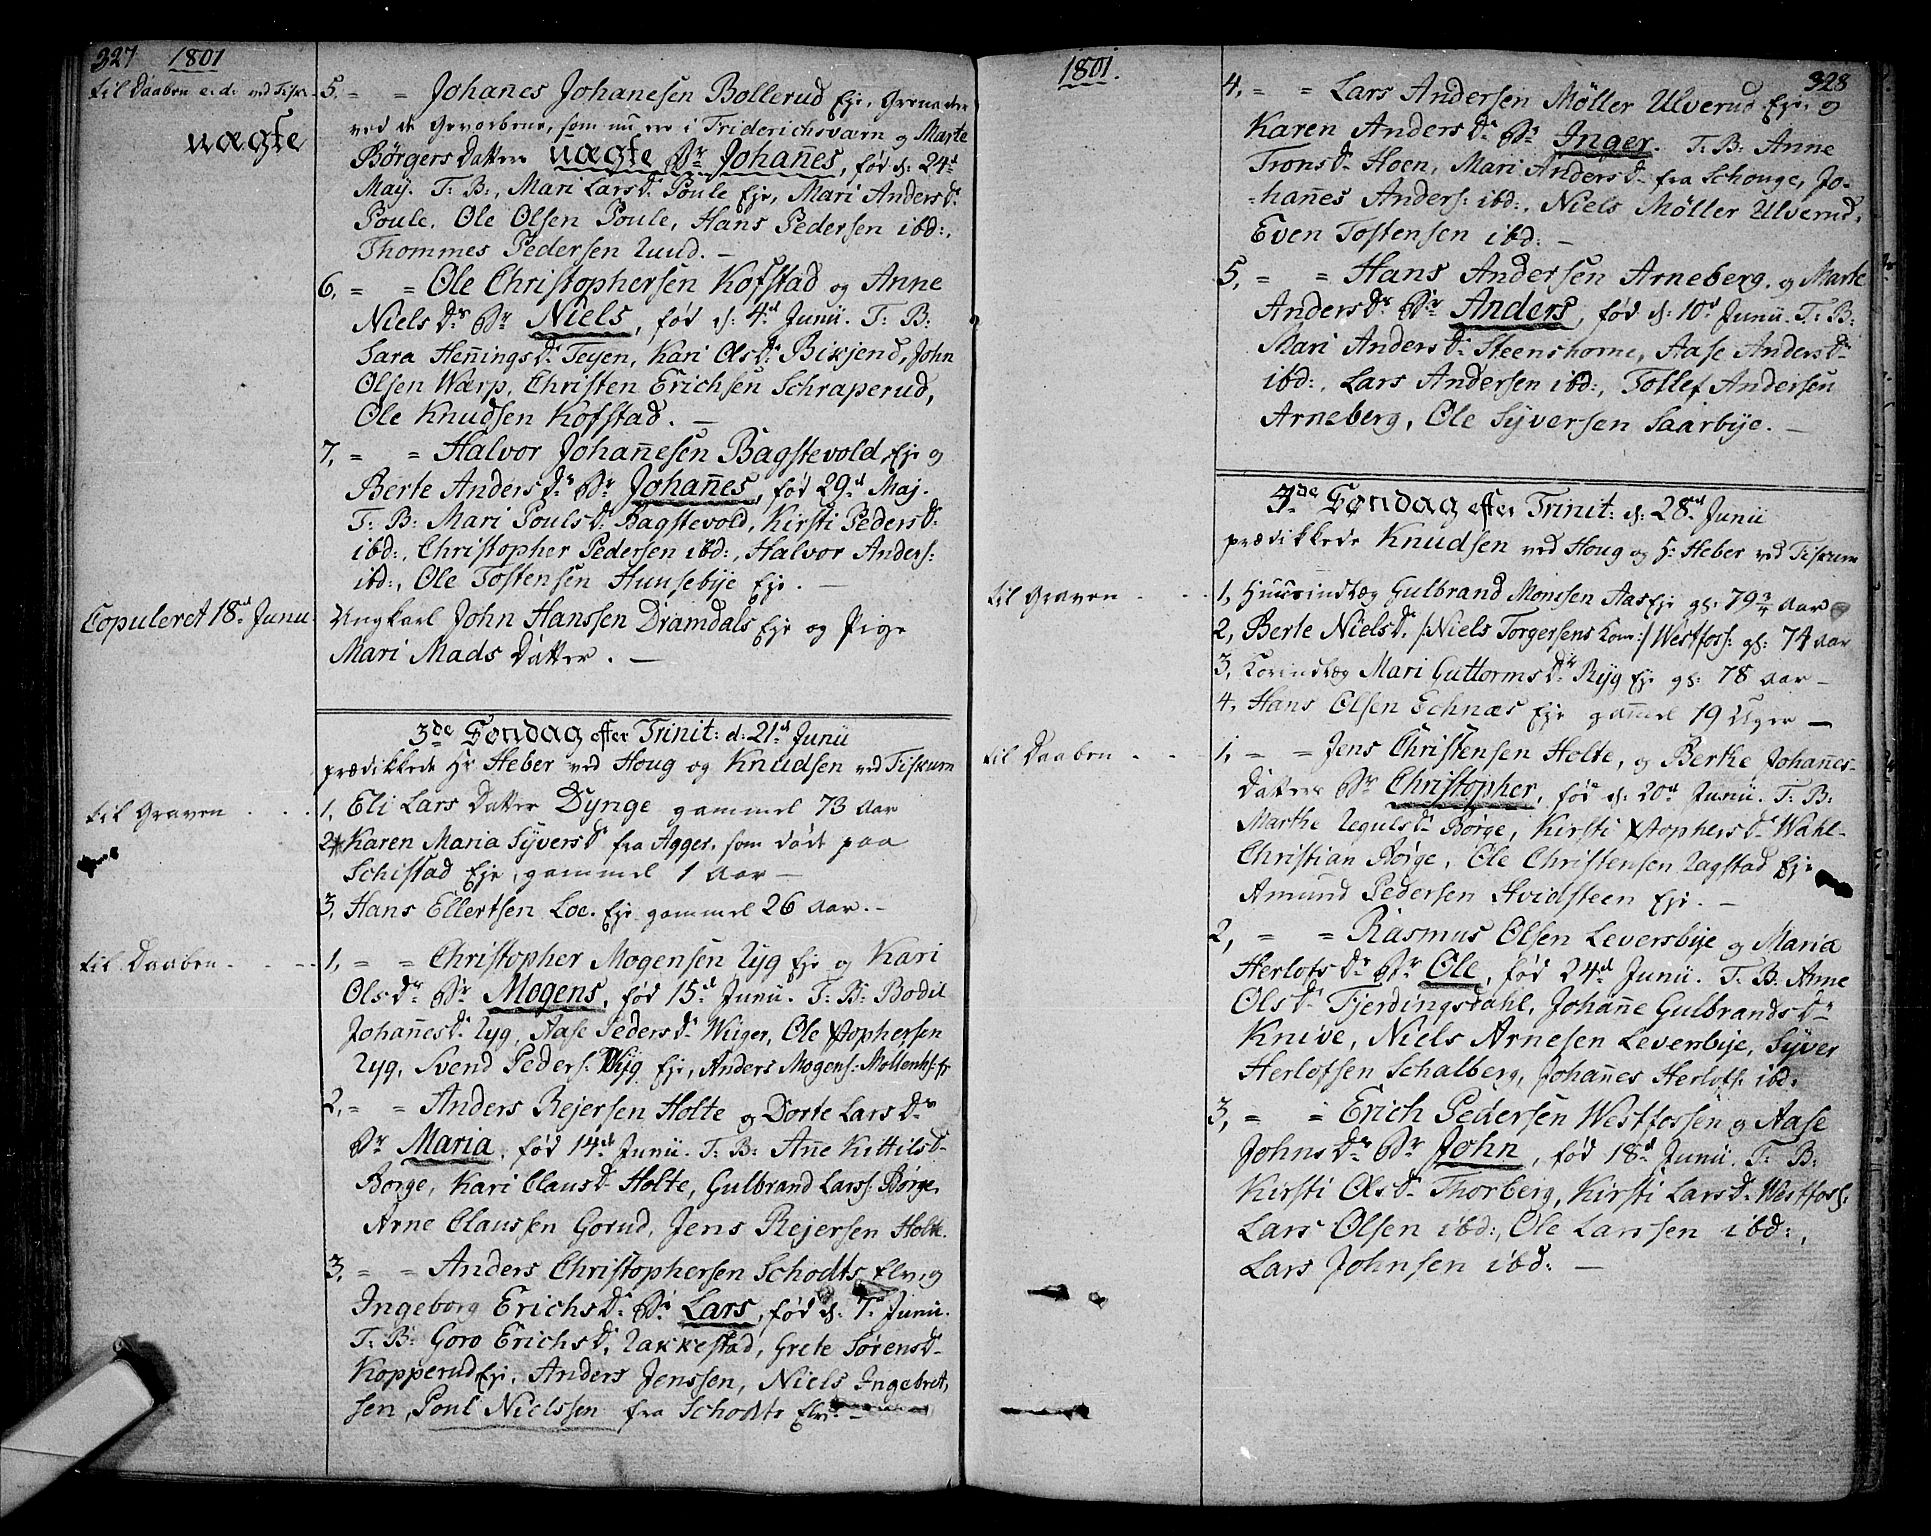 327 1801
til Daaben e. d. ved Fisk.
uægte
5. = = Johanes Johanesen Bollerud Eje, Grenadeer
ved de Gevorbene, som nu ere i Friderichsværn og Marte
Børgers Datters uægte Br Johañes, fød d: 24d
Maj. T: B:, Mari Lars Dr Poule Eje, Mari Anders Dr
Poule, Ole Olsen Poule, Hans Pedersen ibd:,
Thommes Pedersen Ruud. –
6. = = Ole Christophersen Kofstad og Anne
Niels Dr Br Niels, fød d: 4d Junii. T: B:
Sara Heñings Dr Teyen, Kari Ols Dr Bixjend, John
Olsen Wærp, Christen Erichsen Schraperud,
Ole Knudsen Kofstad. –
7. = = Halvor Johañesen Bagstevold Eje og
Berte Anders Dr Br Johañes, fød 29d Maj.
T: B: Mari Pouls Dr Bagstevold, Kirsti Peders Dr
ibd:, Christopher Pedersen ibd:, Halvor Anders:
ibd:, Ole Tostensen Huusebije Eje. –
Copuleret 18d Junii
Ungkarl John Hanssen Dramdals Eje og Pige
Mari Mads Datter. –
3de Søndag efter Trinit: d: 21d Junii
prædikkede Hr Heber ved Houg og Knudsen ved Fiskum
til Graven
1, Eli Lars Datter Dynge gammel 73 Aar
2, Karen Maria Syvers Dr fra Agger, som døde paa
Schistad Eje, gammel 1 Aar –
3, Hans Ellertsen Loe. Eje gammel 26 Aar. –
til Daaben
1, = = Christopher Mogensen Ryg Eje og Kari
Ols Dr Br Mogens, fød 15d Junii. T: B: Bodil
Johañes Dr Ryg, Aase Peders Dr Wiiger, Ole Xstophersen
Ryg, Svend Peders: Wijg Eje, Anders Mogens: Mollenh:
2, = = Anders Rejersen Holte og Dorte Lars Dr
Br Maria, fød 14d Junii. T: B: Añe Kittils Dr
Børge, Kari Claus Dr Holte, Gulbrand Larss: Børge,
Arne Claussen Gorud, Jens Rejersen Holte.
3, = = Anders Christophersen Schodts Elv og
Ingeborg Erichs Dr Br Lars, fød d: 7d Junii.
T: B: Goro Erichs Dr Rakkestad, Grete Sørens Dr
Kopperud Eje, Anders Jenssen, Niels Ingebret,
sen, Poul Nielssen fra Schodts Elv –
1801.
328
4, = = Lars Andersen Møller Ulverud Eje, og
Karen Anders Dr Br Inger. T: B: Anne
Trons Dr Hoen, Mari Anders Dr fra Schouge, Jo-
=hañes Anders: ibd:, Niels Møller Ulverud,
Even Tostensen ibd: –
5, = = Hans Andersen Arneberg, og Marte
Anders Dr Br Anders, fød d: 10d Junii. T: B:
Mari Anders Dr Steenshorne, Aase Anders Dr
ibd:, Lars Andersen ibd:, Tollef Andersen
Arneberg, Ole Syversen Saarbye. –
3de Søndag efter Trinit: d: 28d Junii
prædikkede Knudsen ved Houg og Hr Heber ved Fiskum
til Graven
1, Huusindlæg Gulbrand Monssen Aas Eje gl: 79 3/4 Aar
2, Berte Niels Dr /:Niels Torgersens Kone:/ Westfoss: gl: 74 Aar
3, Mari Guttorms Dr Ryg Eje gl: 78 Aar –
4, Hans Olsen Echnæs Eje gam̃el 19 Uger –
til Daaben
1, = = Jens Christensen Holte, og Berthe Johañes-
Datters Br Christopher, fød d: 20d Junii. T: B:
Marthe Reguls Dr Børge, Kirsti Xstophers Dr Wahl-
Christian Børge, Ole Christensen Ragstad Eje
Amund Pedersen Hvidsteen Eje. –
2, = = Rasmus Olsen Leversbye og Maria
Herlofs Dr Br Ole, fød 24d Junii. T: B: Anne
Ols Dr Fjerdingsdahl, Johañe Gulbrands Dr
Knive, Niels Arnesen Leversbije, Syver
Herlofsen Schalberg, Johañes Herlofs: ibd:
3, = = Erich Pedersen Westfossen og Aase
Johns Dr Br John, fød 18d Junii. T: B:
Kirsti Ols Dr Thorberg, Kirsti Lars Dr Westfoss:
Lars Olsen ibd:, Ole Larssen ibd:,
Lars Johnsen ibd: –